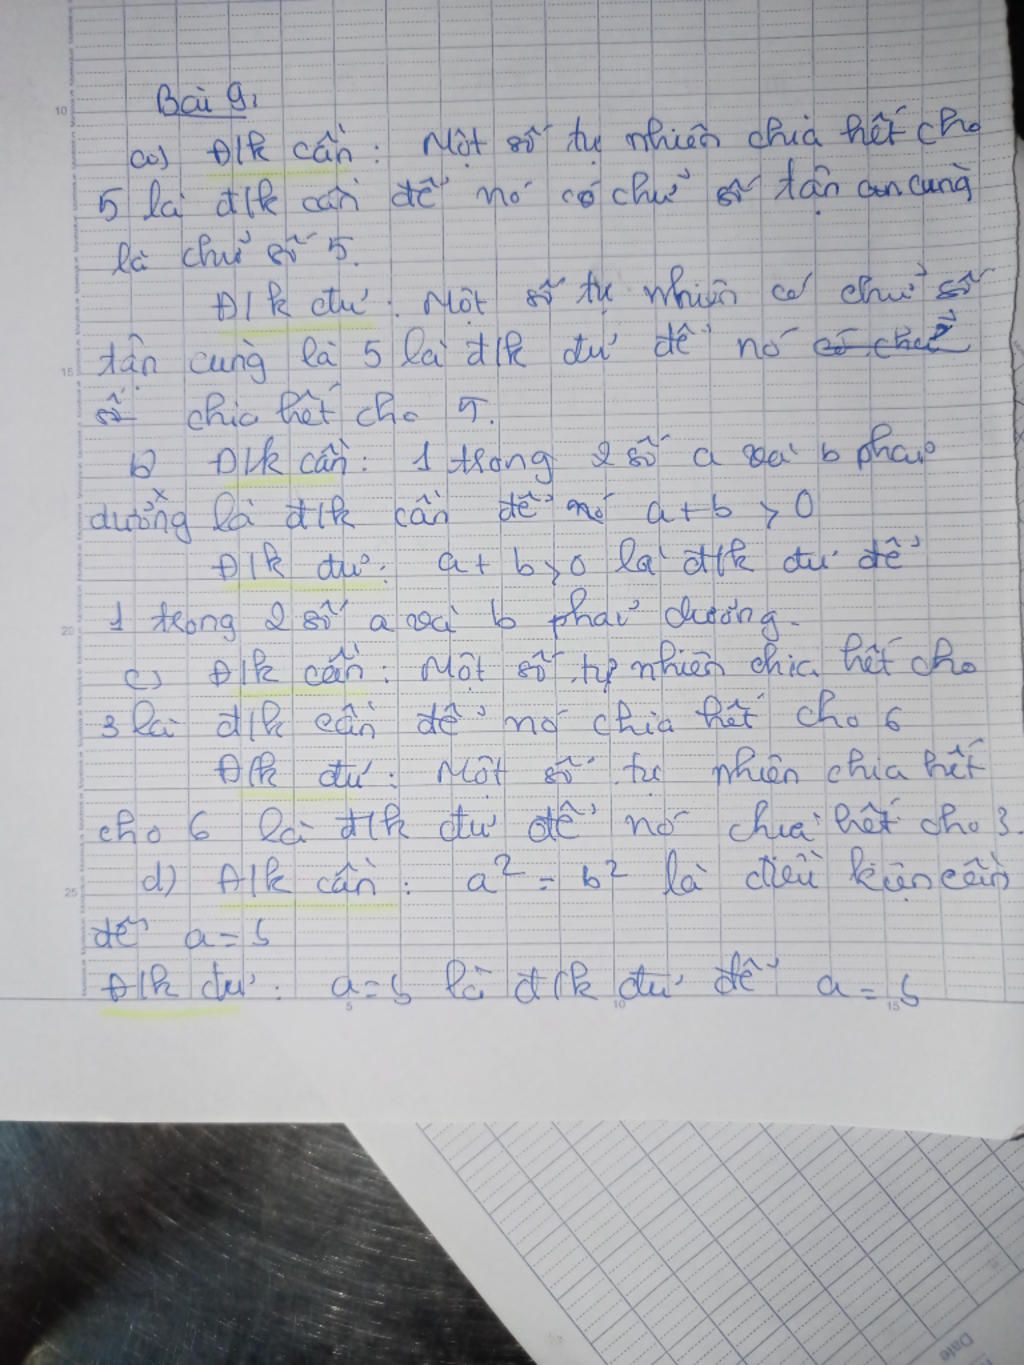 Bài 9,
a) Đ/k cần: Một số tự nhiên chia hết cho
5 là đ/k cần để nó có chữ số tận cùng
là chữ số 5.
Đ/k đủ: Một số tự nhiên có chữ số
tận cùng là 5 là đ/k đủ để nó có chữ
số chia hết cho 5.
b) Đ/k cần: 1 trong 2 số a và b phải
dương là đ/k cần để a+b > 0
Đ/k đủ: a + b > 0 là đ/k đủ để
1 trong 2 số a và b phải dương.
c) Đ/k cần: Một số tự nhiên chia hết cho
3 là đ/k cần để nó chia hết cho 6
Đ/k đủ: Một số tự nhiên chia hết
cho 6 là đ/k đủ để nó chia hết cho 3.
d) Đ/k cần: a² = b² là điều kiện cần
để a = b
Đ/k đủ: a = b là đ/k đủ để a = b
5 10 15
10
15
20
25
Date